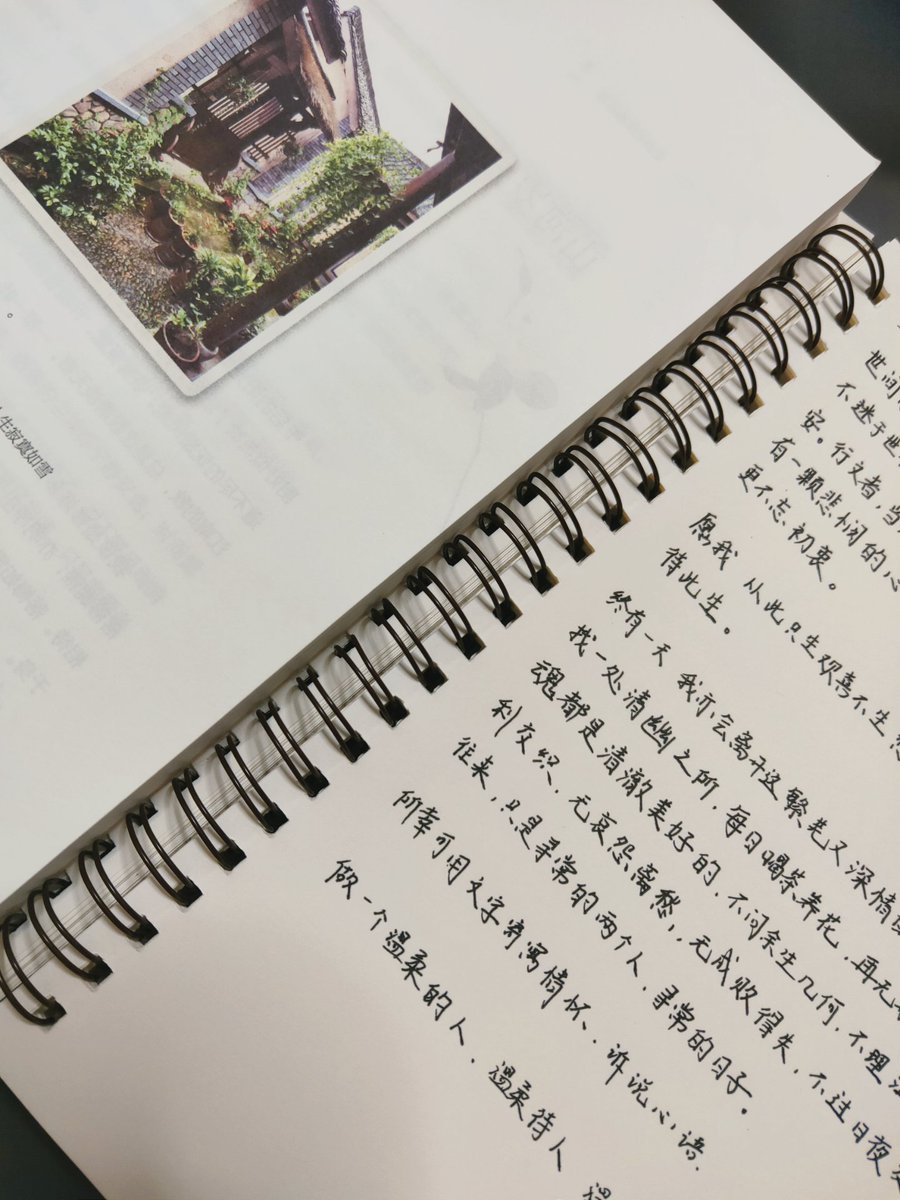 生寂寞如雪
世间
不迷于世
安。行文者,当
有一颗悲悯的心
更不忘初衷。
愿我 从此只生欢喜不生
待此生。
终有一天 我亦会离开这繁华又深情
找一处清幽之所,每日喝茶养花,再无
魂都是清澈美好的,不问余生几何,不理
利交织,无哀怨离愁,无成败得失,不过日夜
往来,只是寻常的两个人,寻常的日子。
所幸可用文字寄写情怀、诉说心语.
做一个温柔的人,温柔待人 温